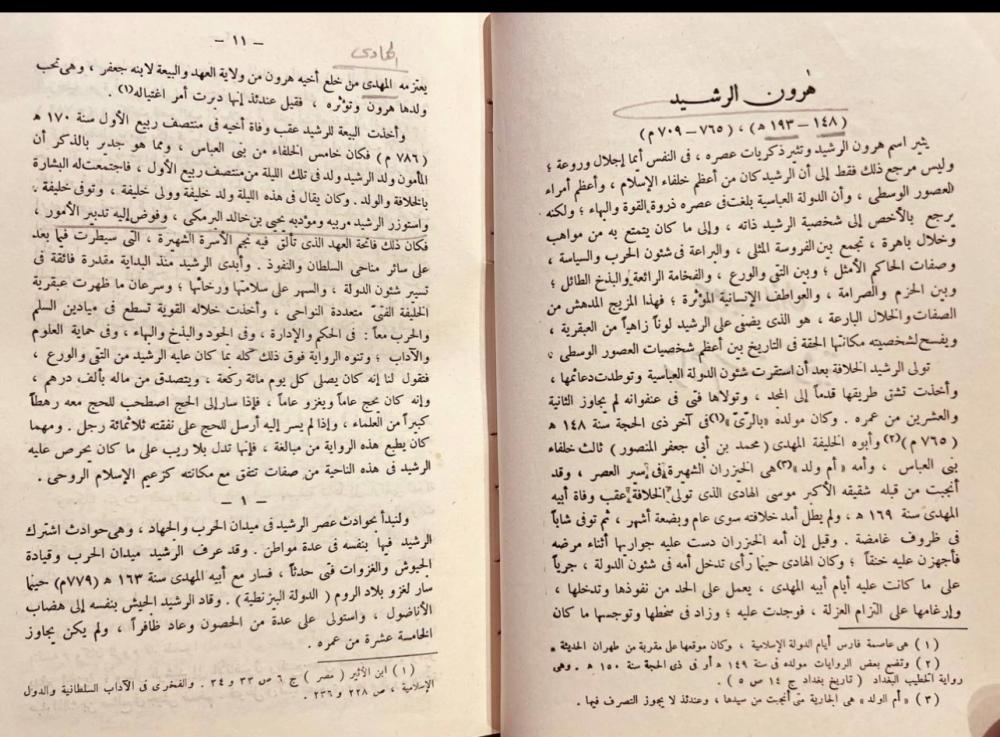 هرون الرشيد
(١٤٨ – ١٩٣ ه) ، (٧٦٥ – ٧٠٩ م)
يثير اسم هرون الرشيد وتثير ذكريات عصره ، فى النفس أيما إجلال وروعة ؛
وليس مرجع ذلك فقط إلى أن الرشيد كان من أعظم خلفاء الإسلام ، وأعظم أمراء
العصور الوسطى ، وأن الدولة العباسية بلغت فى عصره ذروة القوة والبهاء ؛ ولكنه
يرجع بالأخص إلى شخصية الرشيد ذاته ، وإلى ما كان يتمتع به من مواهب
وخلال باهرة ، تجمع بين الفروسة المثلى ، والبراعة فى شئون الحرب والسياسة ،
وصفات الحاكم الأمثل ؛ وبين التقى والورع ، والفخامة الرائعة والبذخ الطائل ؛
وبين الحزم والصرامة ، والعواطف الإنسانية المؤثرة ؛ فهذا المزيج المدهش من
الصفات والخلال البارعة ، هو الذى يضفى على الرشيد لوناً زاهياً من العبقرية ،
ويفسح لشخصيته مكانتها الحقة فى التاريخ بين أعظم شخصيات العصور الوسطى .
تولى الرشيد الخلافة بعد أن استقرت شئون الدولة العباسية وتوطدت دعائمها ،
وأخذت تشق طريقها قدماً إلى المجد ، وتولاها فتى فى عنفوانه لم يجاوز الثانية
والعشرين من عمره . وكان مولده «بالرىّ»(١) فى آخر ذى الحجة سنة ١٤٨ ه
(٧٦٥ م)(٢) وأبوه الخليفة المهدى (محمد بن أبى جعفر المنصور) ثالث خلفاء
بنى العباس ، وأمه «أم ولد»(٣) هى الخيزران الشهيرة فى سير العصر ، وقد
أنجبت من قبله شقيقه الأكبر موسى الهادى الذى تولى الخلافة عقب وفاة أبيه
المهدى سنة ١٦٩ ه ، ولم يطل أمد خلافته سوى عام وبضعة أشهر ، ثم توفى شاباً
فى ظروف غامضة . وقيل إن أمه الخيزران دست عليه جواريها أثناء مرضه
فأجهزن عليه خنقاً ؛ وكان الهادى حينما رأى تدخل أمه فى شئون الدولة ، جرياً
على ما كانت عليه أيام أبيه المهدى ، يعمل على الحد من نفوذها وتدخلها ،
وإرغامها على التزام العزلة ، فوجدت عليه ؛ وزاد فى سخطها وتوجسها ما كان
(١) هى عاصمة فارس أيام الدولة الإسلامية ، وكان موقعها على مقربة من طهران الحديثة .
(٢) وتضع بعض الروايات مولده فى سنة ١٤٩ ه أو فى ذى الحجة سنة ١٥٠ ه . وهى
رواية الخطيب البغداد (تاريخ بغداد ج ١٤ ص ٥) .
(٣) «أم الولد» هى الجارية متى أنجبت من سيدها ، وعندئذ لا يجوز التصرف فيها .
– ١١ –
الهادى
يعتزمه المهدى من خلع أخيه هرون من ولاية العهد والبيعة لابنه جعفر ، وهى تحب
ولدها هرون وتؤثره ، فقيل عندئذ إنها دبرت أمر اغتياله(١) .
وأخذت البيعة للرشيد عقب وفاة أخيه فى منتصف ربيع الأول سنة ١٧٠ ه
(٧٨٦ م) فكان خامس الخلفاء من بنى العباس ، ومما هو جدير بالذكر أن
المأمون ولد الرشيد ولد فى تلك الليلة من منتصف ربيع الأول ، فاجتمعت له البشارة
بالخلافة والولد . وكان يقال فى هذه الليلة ولد خليفة وولى خليفة ، وتوفى خليفة .
واستوزر الرشيد مربيه ومؤدبه يحيى بن خالد البرمكى ، وفوض إليه تدبير الأمور ،
فكان ذلك فاتحة العهد الذى تألق فيه نجم الأسرة الشهيرة ، التى سيطرت فيما بعد
على سائر مناحى السلطان والنفوذ . وأبدى الرشيد منذ البداية مقدرة فائقة فى
تسيير شئون الدولة ، والسهر على سلامتها ورخائها ؛ وسرعان ما ظهرت عبقرية
الخليفة الفتىّ متعددة النواحى ، وأخذت خلاله القوية تسطع فى ميادين السلم
والحرب معاً : فى الحكم والإدارة ، وفى الجود والبذخ والبهاء ، وفى حماية العلوم
والآداب ؛ وتنوه الرواية فوق ذلك كله بما كان عليه الرشيد من التقى والورع ،
فتقول لنا إنه كان يصلى كل يوم مائة ركعة ، ويتصدق من ماله بألف درهم ،
وإنه كان يحج عاماً ويغزو عاماً ، فإذا سار إلى الحج اصطحب للحج معه رهطاً
كبيراً من العلماء ، وإذا لم يسر إليه أرسل للحج على نفقته ثلاثمائة رجل . ومهما
كان يطبع هذه الرواية من مبالغة ، فإنها تدل بلا ريب على ما كان يحرص عليه
الرشيد فى هذه الناحية من صفات تتفق مع مكانته كزعيم الإسلام الروحى .
– ١ –
ولنبدأ بحوادث عصر الرشيد فى ميدان الحرب والجهاد ، وهى حوادث اشترك
الرشيد فيها بنفسه فى عدة مواطن . وقد عرف الرشيد ميدان الحرب وقيادة
الجيوش والغزوات فتى حدثاً ، فسار مع أبيه المهدى سنة ١٦٣ ه (٧٧٩م) حينما
سار لغزو بلاد الروم (الدولة البيزنطية) . وقاد الرشيد الجيش بنفسه إلى هضاب
الأناضول ، واستولى على عدة من الحصون وعاد ظافراً ، ولم يكن يجاوز
الخامسة عشرة من عمره .
(١) ابن الأثير (مصر) ج ٦ ص ٣٣ و ٣٤ . والفخرى فى الآداب السلطانية والدول
الإسلامية ، ص ٢٢٨ و ٢٣٦ .